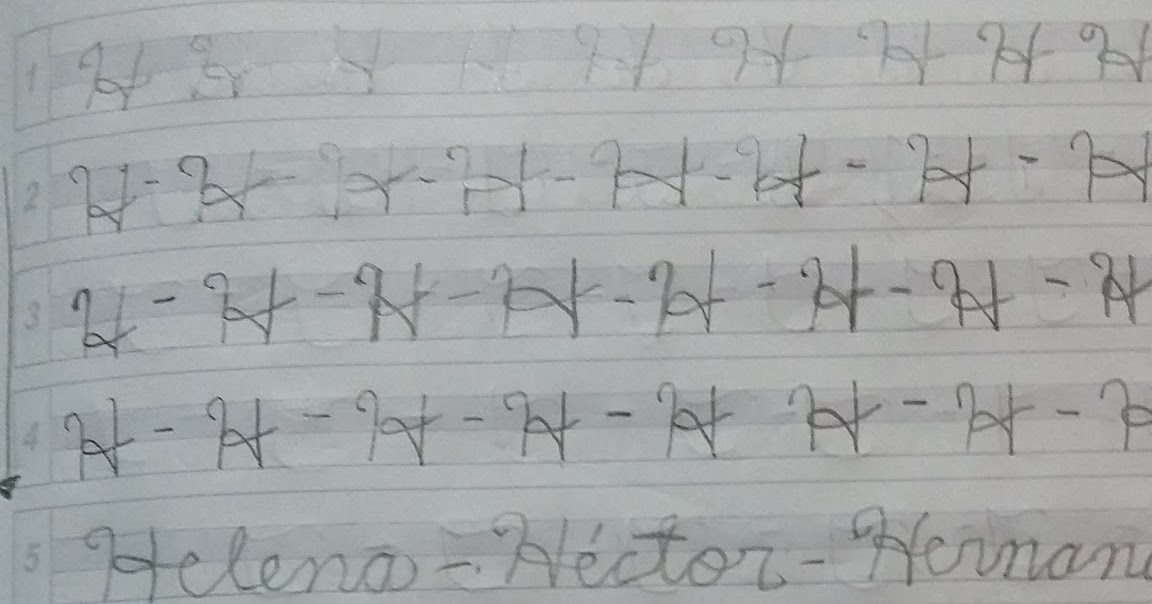 1 H H H H H H H H H
2 H - H - H - H - H - H - H - H
3 H - H - H - H - H - H - H - H
4 H - H - H - H - H H - H -
5 Helena - Héctor - Hernan